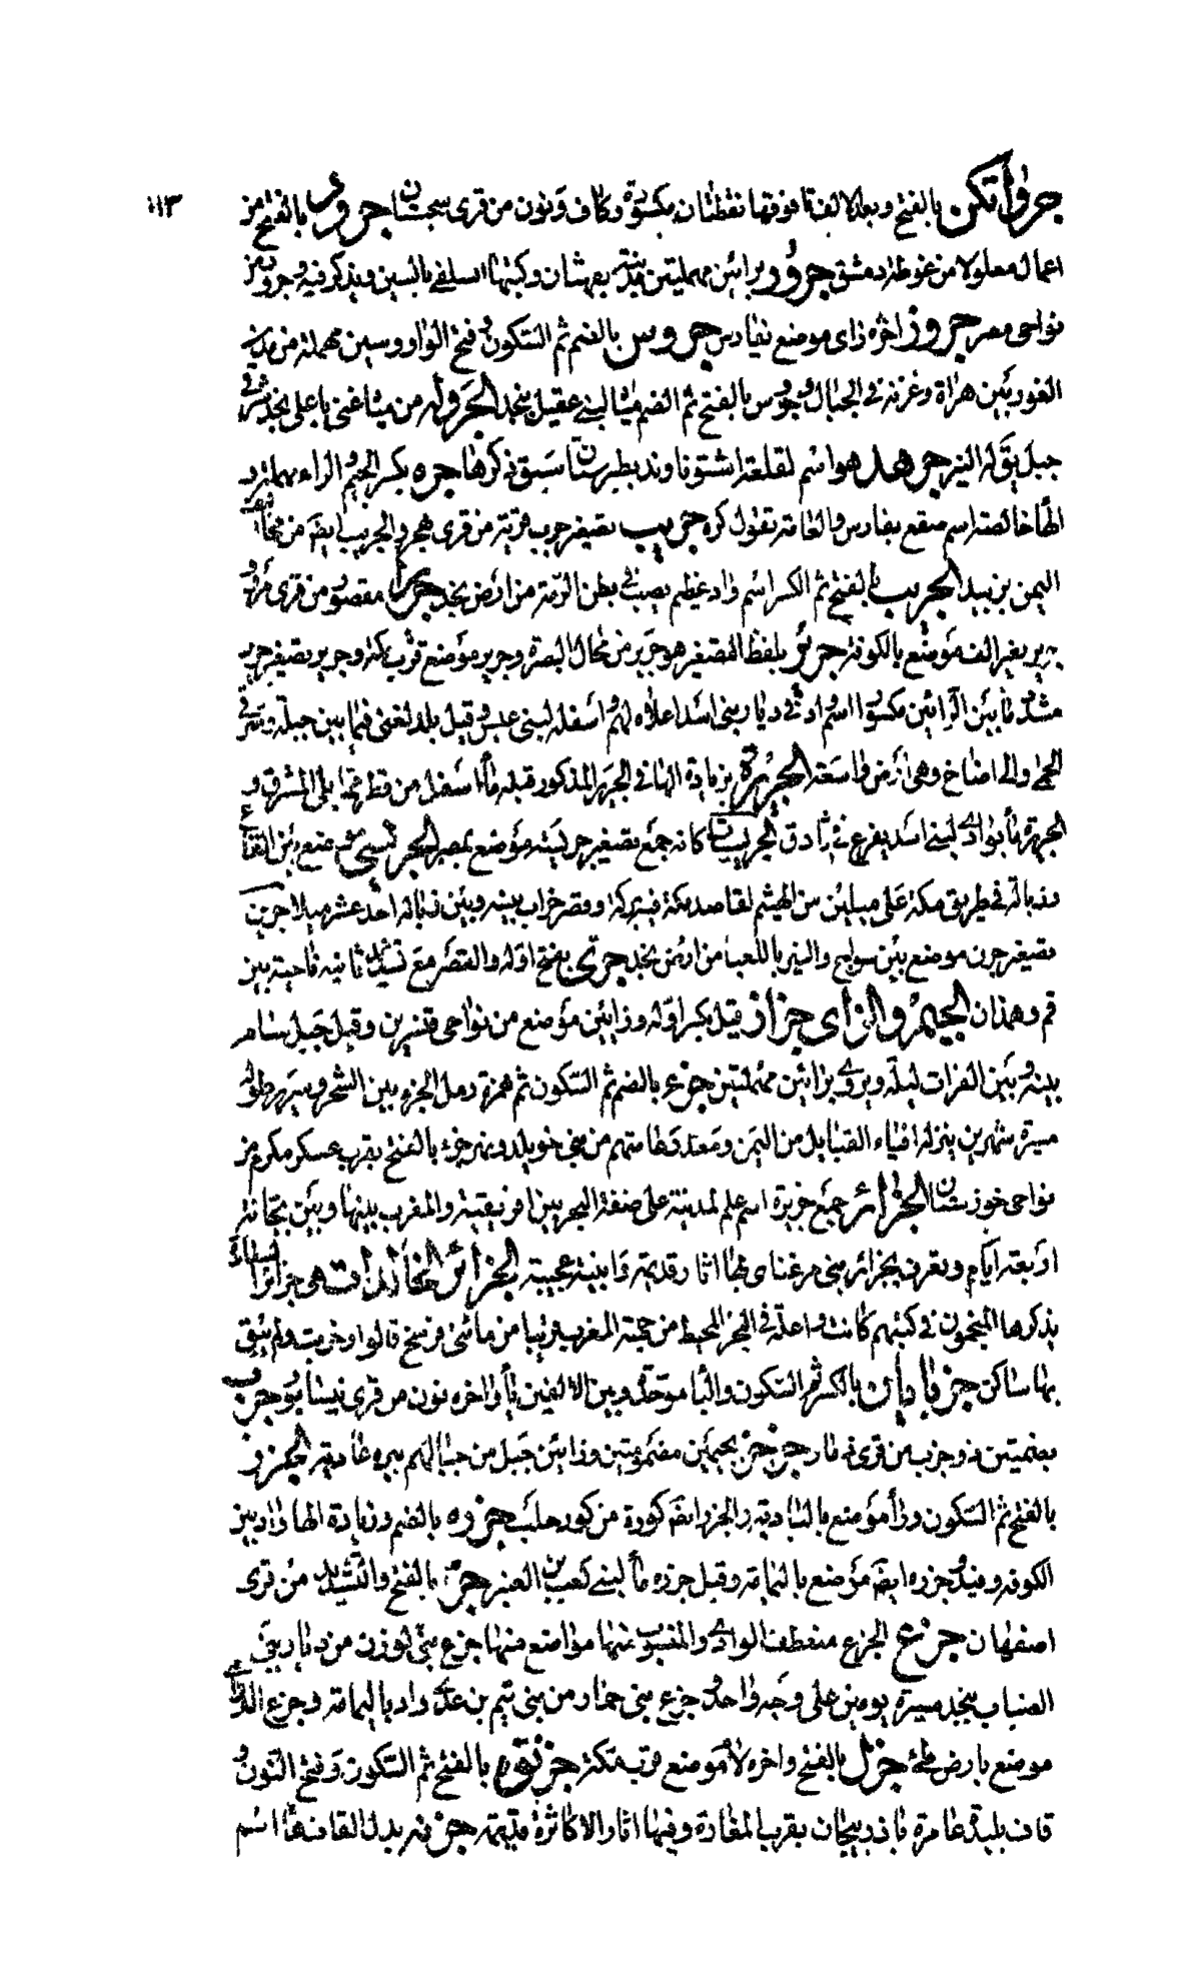 ١١٣
جرواتكن بالفتح وبعد الالف تا فوقها نقطتان مكسورة وكاف ونون من قرى سجستان جرود بالفتح من
اعمال معلولا من غوطة دمشق جرور برائين مهملتين مدينة بقهستان وكتبها السلفي بالسين ويذكر فيه وجرور من
نواحي مصر جروز اخره زاي موضع بفارس جروس بالضم ثم السكون وفتح الواو وسين مهملة من مدن
الغور بين هراة وغزنة في الجبال وجروس بالفتح ثم الضم ماء لبني عقيل بنجد الجرولة من مياه غنى باعلى نجد شرقي
جبل يقال له النير جرهد هو اسم لقلعة استوناوند بطبرستان سبق ذكرها جره بكسر الجيم والراء مهملة و
الهأ خالصة اسم صقع بفارس والعامة تقول كره جريب تصغير جرب قرية من قرى هجر والجريب ايض من مخاليف
اليمن بزبيد الجريب بالفتح ثم الكسر اسم واد عظيم يصب في بطن الرمة من ارض نجد جريرا مقصور من قرى مرو و
جرير بغير الف موضع بالكوفة جرير بلفظ المصغر هو جرير من محال البصرة وجرير موضع قرب مكة وجرير تصغير جرير
مشدد ما بين الرائين مكسور اسم واد في ديار بني اسد اعلاه لهم واسفله لبني عبس وقيل بلد لغنى فيما بين جبلة وشرقي
الحمى والى اضاخ وهي ارض واسعة الجريرة بزيادة الهأ في الجرير المذكور قبله مأ اسفل من قطن مما يلي المشرق و
الجريرة مأ بواد لبني اسد يفرغ في ثادق الجريسات كانه جمع تصغير جريسة موضع بمصر الجريسي موضع بين القاع
وزبالة في طريق مكة على ميلين من الهيثم لقاصد مكة فيه بركة وقصر خراب بينه وبين زبالة احد عشر ميلا جرين
تصغير جرن موضع بين سواج والنير باللعبا من ارض نجد جرى بفتح اوله والقصر مع تشديد ثانيه ناحية بين
قم وهمذان الجيم والزاي جزاز قيل بكسر اوله وزايين موضع من نواحي قنسرين وقيل جبل بشام
بينه وبين الفرات ليلة ويروى برائين مهملتين جزء بالضم ثم السكون ثم همزة رمل الجزء بين الشحر ويبرين طوله
مسيرة شهرين ينزله افناء القبايل من اليمن ومعد وعامتهم من بني خويلد ونهر جزء بالفتح بقرب عسكر مكرم من
نواحي خوزستان الجزائر جمع جزيرة اسم علم لمدينة على ضفة البحر بين افريقية والمغرب بينها وبين بجاية
اربعة ايام وتعرف بجزائر بني مزغناي فيها اثار قديمة وابنية عجيبة الجزائر الخالدات هي جزائر السعادة
يذكرها المنجمون في كتبهم كانت واغلة في البحر المحيط من جهة المغرب قريبا من مائتي فرسخ قالوا وخربت ولم يبق
بها ساكن جزباران بالكسر ثم السكون والبا موحدة وبين الالفين رأ واخره نون من قرى نيسابور جزب
بضمتين ذو جزب من قرى ذمار جزجز بجيمين مضمومتين وزايين جبل من جبالهم بئره عادية الجزر
بالفتح ثم السكون ورأ موضع بالبادية والجزر ايض كورة من كور حلب جزره بالضم وزيادة الها واد بين
الكوفة وفيد وجزره ايض موضع باليمامة وقيل جزره مأ لبني كعب بن العنبر جز بالفتح والتشديد من قرى
اصفهان جزع الجزع منعطف الوادي والمنسوب منها مواضع منها جزع بني كوز من ديار بني
الضباب بنجد مسيرة يومين على وجه واحد وجزع بني حمار من بني تيم بن عدي واد باليمامة وجزع الدواهي
موضع بارض طئ جزل بالفتح واخره لأ موضع قرب مكة جزنق بالفتح ثم السكون وفتح النون و
قاف بليدة عامرة باذربيجان بقرب المراغة وفيها اثار الاكاسرة قديمة جزنه بدل القاف هأ اسم